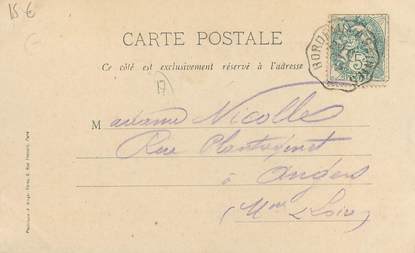 15 €
CARTE POSTALE
Ce côté est exclusivement réservé à l'adresse
17
Madame Nicolle
Rue Plantagenet
à Angers
(Mne & Loire)
5